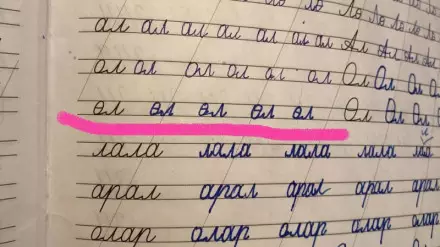 ал ал ал ал ал ал ал Ал Ал Ал
ол ол ол ол ол ол Ол Ол Ол
өл өл өл өл өл Өл Өл Өл
лала лала лала лала
арал арал арал арал арал
олар олар олар олар олар